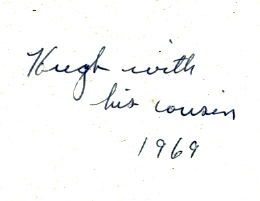 Hugh with
his cousin
1969